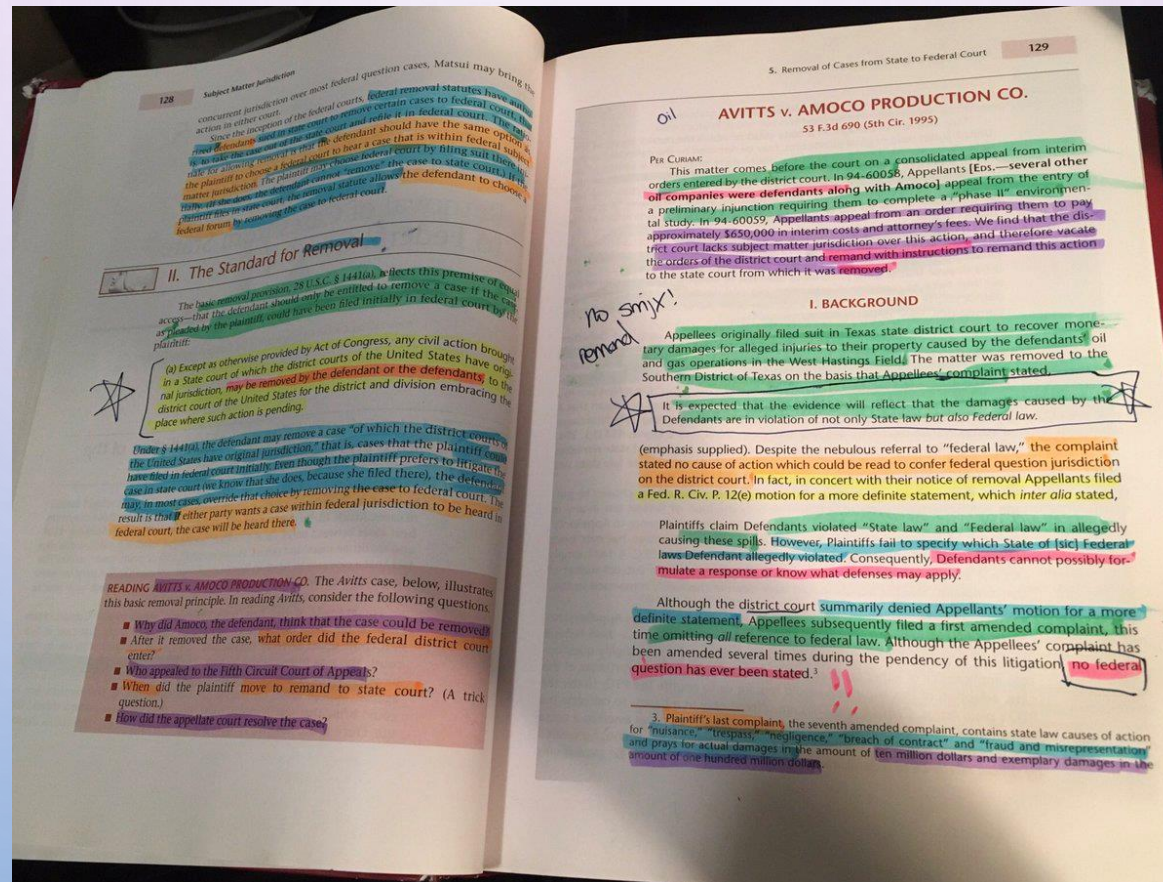 128
Subject Matter Jurisdiction
concurrent jurisdiction over most federal question cases, Matsui may bring the
action in either court.
Since the inception of the federal courts, federal removal statutes have autho-
rized defendants sued in state court to remove certain cases to federal court, that
is, to take the case out of the state court and refile it in federal court. The ratio-
nale for allowing removal is that the defendant should have the same option as
the plaintiff to choose a federal court to hear a case that is within federal subject
matter jurisdiction. The plaintiff may choose federal court by filing suit there
If she does, the defendant cannot "remove" the case to state court.) If the
plaintiff files in state court, the removal statute allows the defendant to choose a
federal forum by removing the case to federal court.
II. The Standard for Removal
The basic removal provision, 28 U.S.C. § 1441(a), reflects this premise of equal
access—that the defendant should only be entitled to remove a case if the case,
as pleaded by the plaintiff, could have been filed initially in federal court by the
plaintiff:
(a) Except as otherwise provided by Act of Congress, any civil action brought
in a State court of which the district courts of the United States have origi-
nal jurisdiction, may be removed by the defendant or the defendants, to the
district court of the United States for the district and division embracing the
place where such action is pending.
Under § 1441(a), the defendant may remove a case "of which the district courts of
the United States have original jurisdiction," that is, cases that the plaintiff could
have filed in federal court initially. Even though the plaintiff prefers to litigate the
case in state court (we know that she does, because she filed there), the defendant
may, in most cases, override that choice by removing the case to federal court. The
result is that if either party wants a case within federal jurisdiction to be heard in
federal court, the case will be heard there.
READING AVITTS v. AMOCO PRODUCTION CO. The Avitts case, below, illustrates
this basic removal principle. In reading Avitts, consider the following questions.
■ Why did Amoco, the defendant, think that the case could be removed?
■ After it removed the case, what order did the federal district court
enter?
■ Who appealed to the Fifth Circuit Court of Appeals?
■ When did the plaintiff move to remand to state court? (A trick
question.)
■ How did the appellate court resolve the case?
5. Removal of Cases from State to Federal Court
129
Oil
AVITTS v. AMOCO PRODUCTION CO.
53 F.3d 690 (5th Cir. 1995)
PER CURIAM:
This matter comes before the court on a consolidated appeal from interim
orders entered by the district court. In 94-60058, Appellants [EDS.—several other
oil companies were defendants along with Amoco] appeal from the entry of
a preliminary injunction requiring them to complete a "phase II" environmen-
tal study. In 94-60059, Appellants appeal from an order requiring them to pay
approximately $650,000 in interim costs and attorney's fees. We find that the dis-
trict court lacks subject matter jurisdiction over this action, and therefore vacate
the orders of the district court and remand with instructions to remand this action
to the state court from which it was removed.
no smjx!
remand
I. BACKGROUND
Appellees originally filed suit in Texas state district court to recover mone-
tary damages for alleged injuries to their property caused by the defendants' oil
and gas operations in the West Hastings Field. The matter was removed to the
Southern District of Texas on the basis that Appellees' complaint stated,
It is expected that the evidence will reflect that the damages caused by the
Defendants are in violation of not only State law but also Federal law.
(emphasis supplied). Despite the nebulous referral to "federal law," the complaint
stated no cause of action which could be read to confer federal question jurisdiction
on the district court. In fact, in concert with their notice of removal Appellants filed
a Fed. R. Civ. P. 12(e) motion for a more definite statement, which inter alia stated,
Plaintiffs claim Defendants violated "State law" and "Federal law" in allegedly
causing these spills. However, Plaintiffs fail to specify which State of [sic] Federal
laws Defendant allegedly violated. Consequently, Defendants cannot possibly for-
mulate a response or know what defenses may apply.
Although the district court summarily denied Appellants' motion for a more
definite statement, Appellees subsequently filed a first amended complaint, this
time omitting all reference to federal law. Although the Appellees' complaint has
been amended several times during the pendency of this litigation, no federal
question has ever been stated.³
!!
3. Plaintiff's last complaint, the seventh amended complaint, contains state law causes of action
for "nuisance," "trespass," "negligence," "breach of contract" and "fraud and misrepresentation"
and prays for actual damages in the amount of ten million dollars and exemplary damages in the
amount of one hundred million dollars.